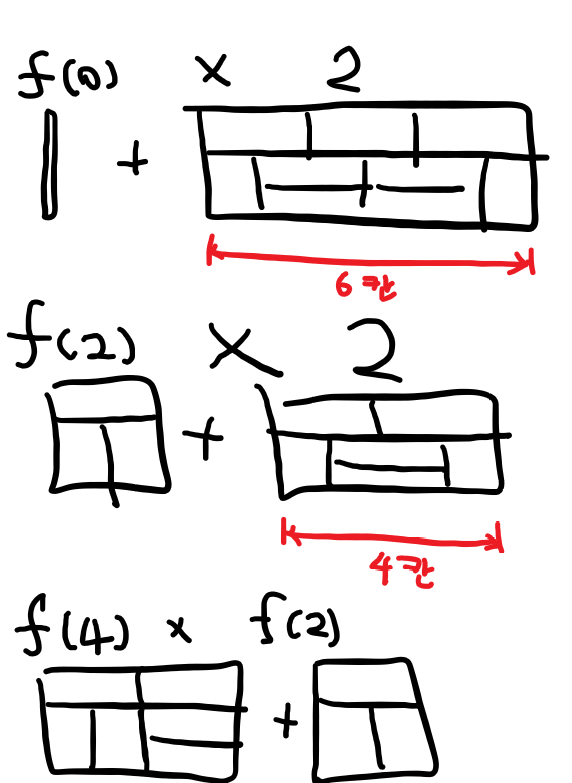 f(0) x 2
+
6칸
f(2) x 2
+
4칸
f(4) x f(2)
+